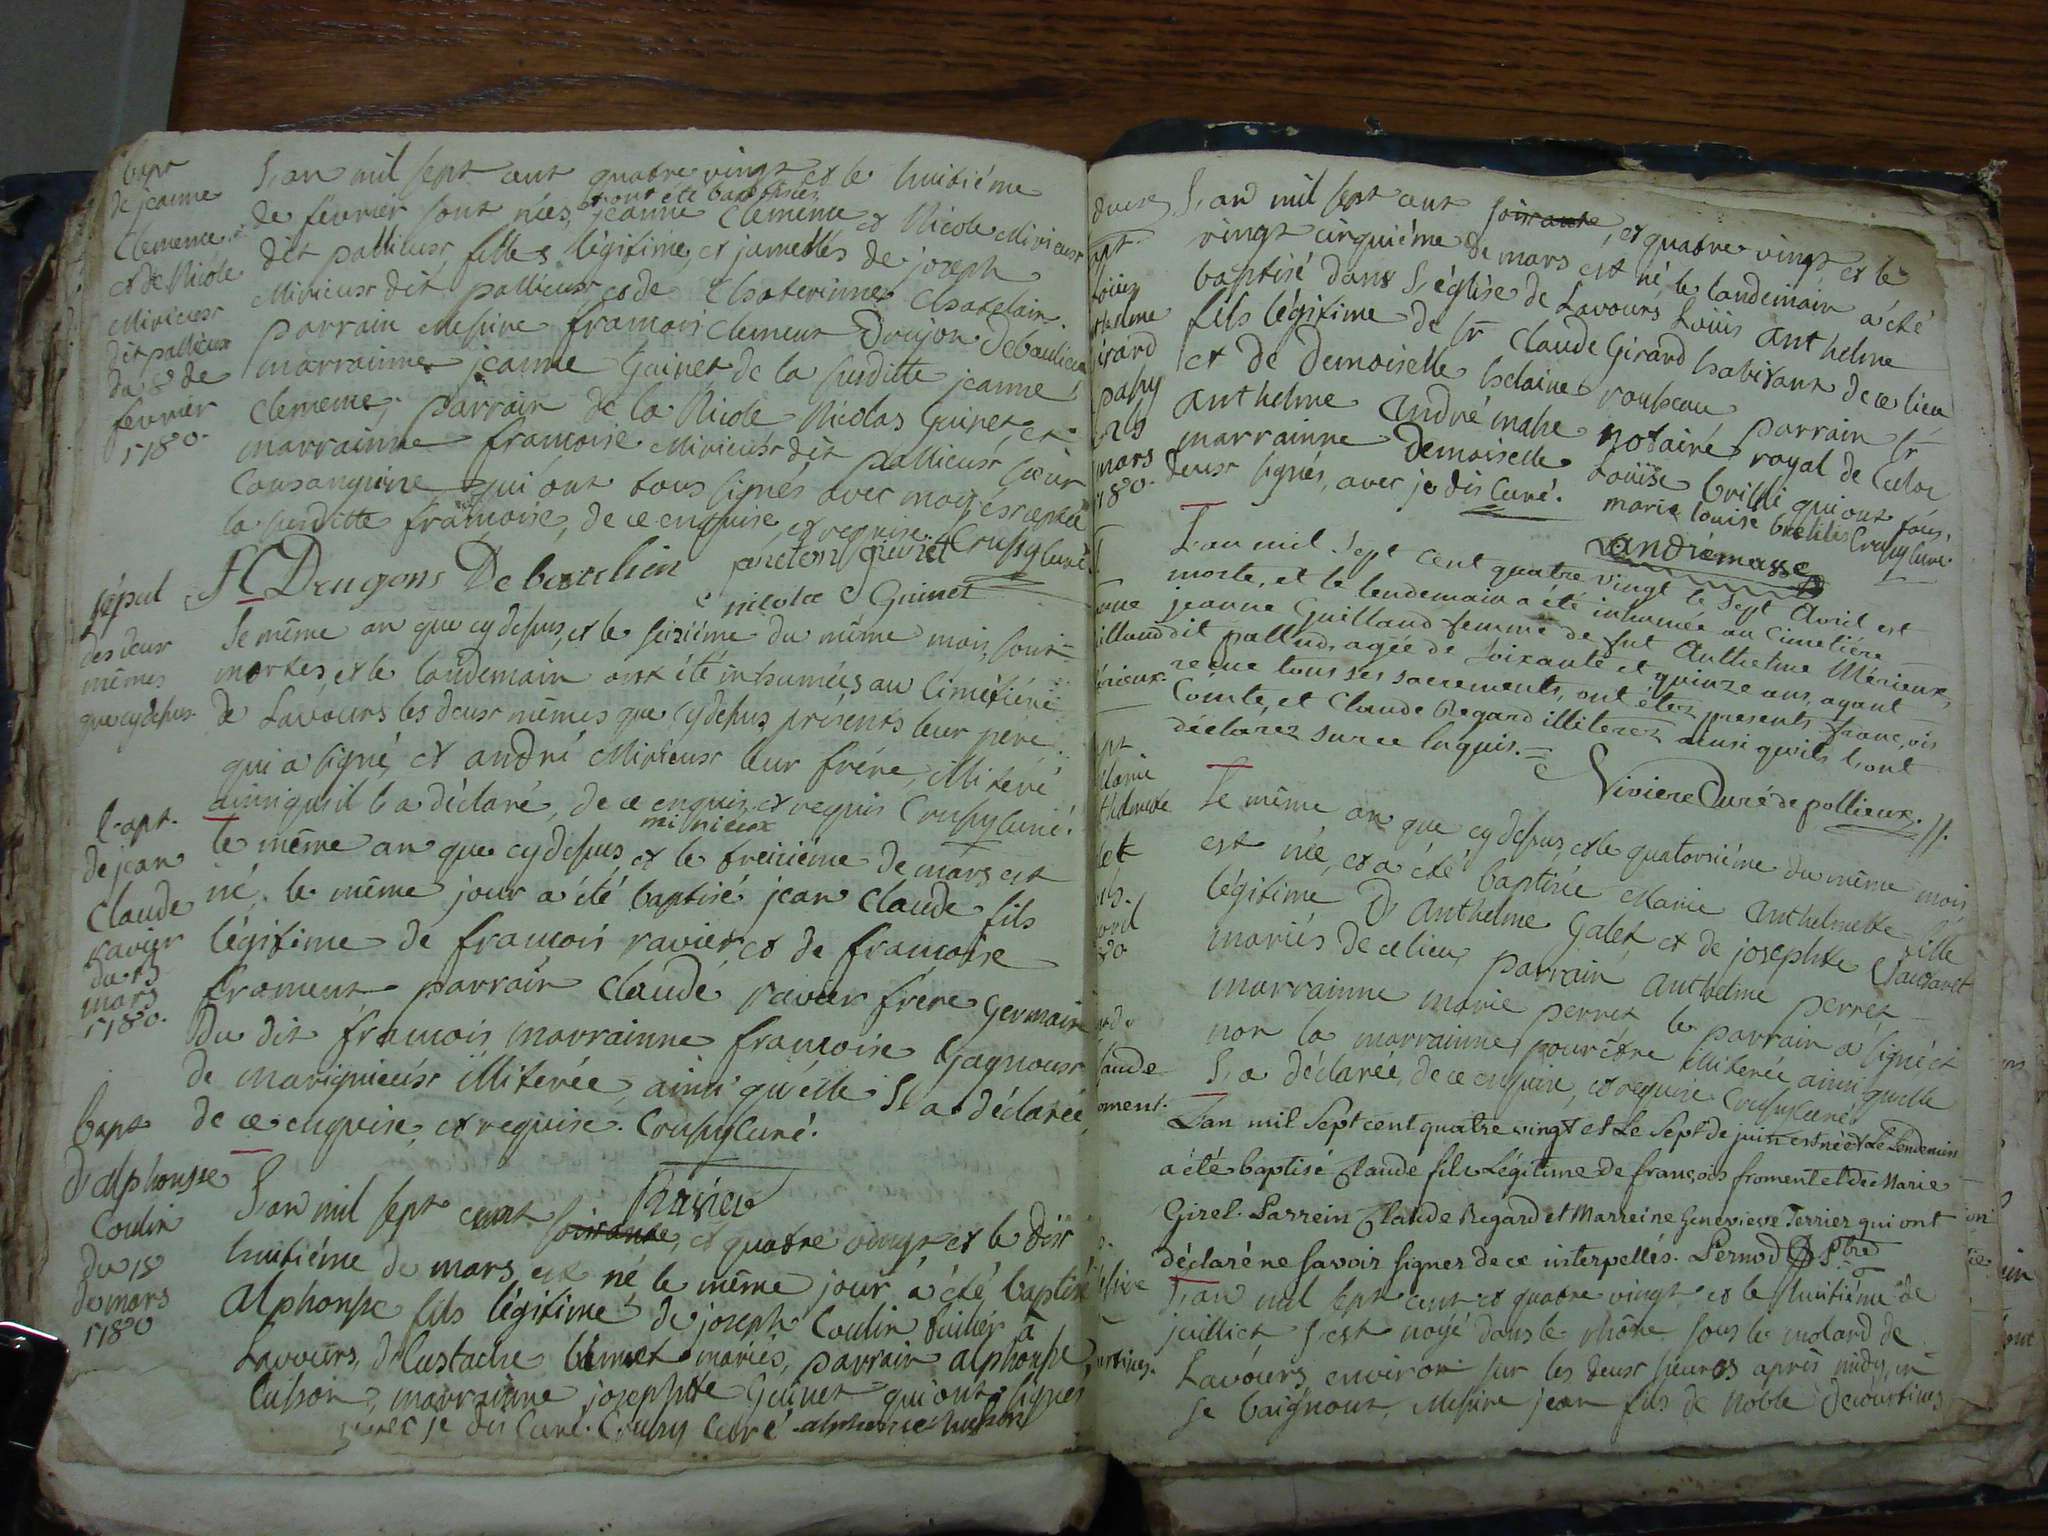 bapt
de jeanne
Clemence
et de Nicole
Mirieux
dit pallieux
du 8 de
fevrier
1780.
L'an mil sept cent quatre vingt et le huitiéme
de février sont nées, et ont été baptisées jeanne Clemence et Nicole Mirieux
dit pallieux filles légitime, et jumelles de joseph
Mirieux dit pallieux et de Chaterinne Chatelain.
parrain messire francois Clement Drujon Debaulieu
marrainne jeanne Guinet de la susditte jeanne
Clemence, parrain de la Nicole Nicolas Guinet, et
marrainne francoise Mirieux dit pallieux soeur
Consanguine qui ont tous signés avec moi, éxcepté
la susditte francoise, de ce enquise et requise. Crussy Curé.
Nicolas Guinet
sépul
des deux
mêmes
que cy dessus.
Le même an que cy dessus, et le seizième du même mois, sont
mortes, et le landemain ont été inhumées au Cimétiére
de Lavours les deux mêmes que cy dessus, présents leur pére
qui a signé, et andré Mirieux leur frére, illiteré
ainsi qu'il l'a déclaré, de ce enquis, et requis Crussy Curé.
mirieux
bapt.
de jean
Claude
ravier
du 13
mars
1780.
Le même an que cy dessus, et le treiziéme de mars est
né, le même jour a été baptisé jean Claude fils
légitime de francois ravier, et de francoise
froment parrain Claude ravier frére Germain
du dit francois marrainne francoise Gagnoux
de marignieux illiterée, ainsi qu'elle l'a déclarée,
de ce enquise, et requise. Crussy Curé.
Ravier
bapt
d'alphonse
Coulin
du 18
de mars
1780
L'an mil sept cent soixante, et quatre vingt et le dix
huitiéme de mars est né le même jour a été baptisé
alphonse fils légitime de joseph Coulin fuilier à
Lavours, d'Eustache benet mariés, parrain alphonse
Cusson, marrainne josephtte Guinet qui ont signés
avec je dis Curé. Crussy Curé alphonse
L'an mil sept cent soixante, et quatre vingt et le
vingt cinquiéme de mars est né le landemain a été
baptisé dans l'église de Lavours Loüis anthelme
fils légitime de sr Claude Girard habitant de ce lieu
et de Demoiselle helaine rousseau, parrain sr
anthelme andré mahe notaire royal de Culoz
marrainne Demoiselle Loüise brilli qui ont tous
deux signés, avec je dis Curé. marie louise brellits Crussy Curé.
mars
1780.
L'an mil sept cent quatre vingt le sept Avril est
morte, et le lendemain a été inhumée au Cimetiére
jeanne Guilland femme de fut Anthelme Mérieux,
dit pallud, agée de soixante et quinze ans, ayant
reçue tous ses sacrements, ont étez presents françois
Cointe, et Claude Regard illiterez ainsi qu'ils l'ont
déclarez sur ce enquis.
Viviere Curé de pollieux.
Le même an que cy dessus, et le quatorziéme du même mois
est née, et a été baptisée Marie anthelmette fille
légitime D'anthelme Galet, et de josephte
mariés de ce lieu, parrain anthelme perret
marrainne marie perret le parrain a signé et
non la marrainne, pour être illiterée, ainsi qu'elle
l'a déclarée, de ce enquise, et requise Crussy Curé
L'an mil Sept cent quatre vingt et Le Sept de juin est né et Le Lendemain
a été baptisé Claude fils Légitime de françois froment et de Marie
Girel. Parrein Claude Regard et Marreine Genevieve Terrier qui ont
déclaré ne savoir signer de ce interpellés. Pernod Ptre
L'an mil sept cent et quatre vingt et le huitiéme de
juilliet s'est noyé dans le rhône sous le molard de
Lavours environ sur les deux heures aprés midy, en
se baignant, Messire jean fils de Noble